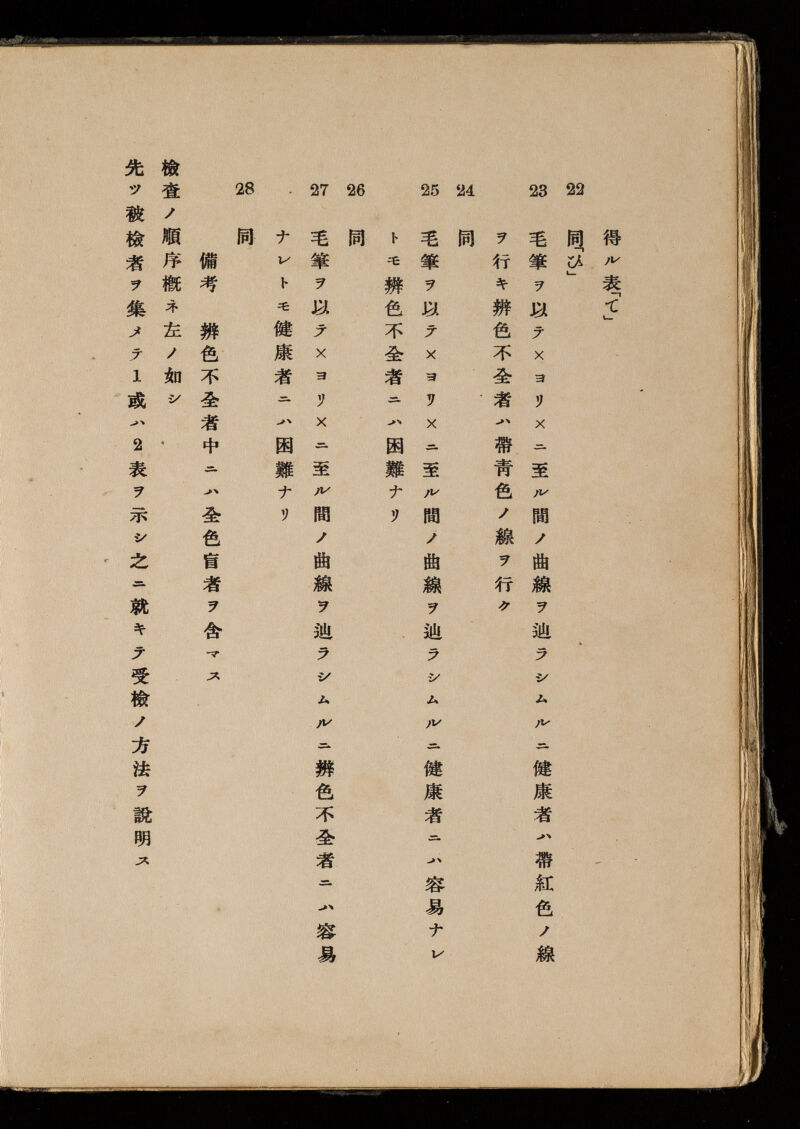 得ル表「て」
22 同「ひ」
23 毛筆ヲ以テ×ヨリ×ニ至ル間ノ曲線ヲ辿ラシムルニ健康者ハ帶紅色ノ線
ヲ行キ辨色不全者ハ帶青色ノ線ヲ行ク
24 同
25 毛筆ヲ以テ×ヨリ×ニ至ル間ノ曲線ヲ辿ラシムルニ健康者ニハ容易ナレ
トモ辨色不全者ニハ困難ナリ
26 同
27 毛筆ヲ以テ×ヨリ×ニ至ル間ノ曲線ヲ辿ラシムルニ辨色不全者ニハ容易
ナレトモ健康者ニハ困難ナリ
28 同
備考 辨色不全者中ニハ全色盲者ヲ含マス
檢査ノ順序槪ネ左ノ如シ
先ツ被檢者ヲ集メテ1或ハ2表ヲ示シ之ニ就キテ受檢ノ方法ヲ說明ス